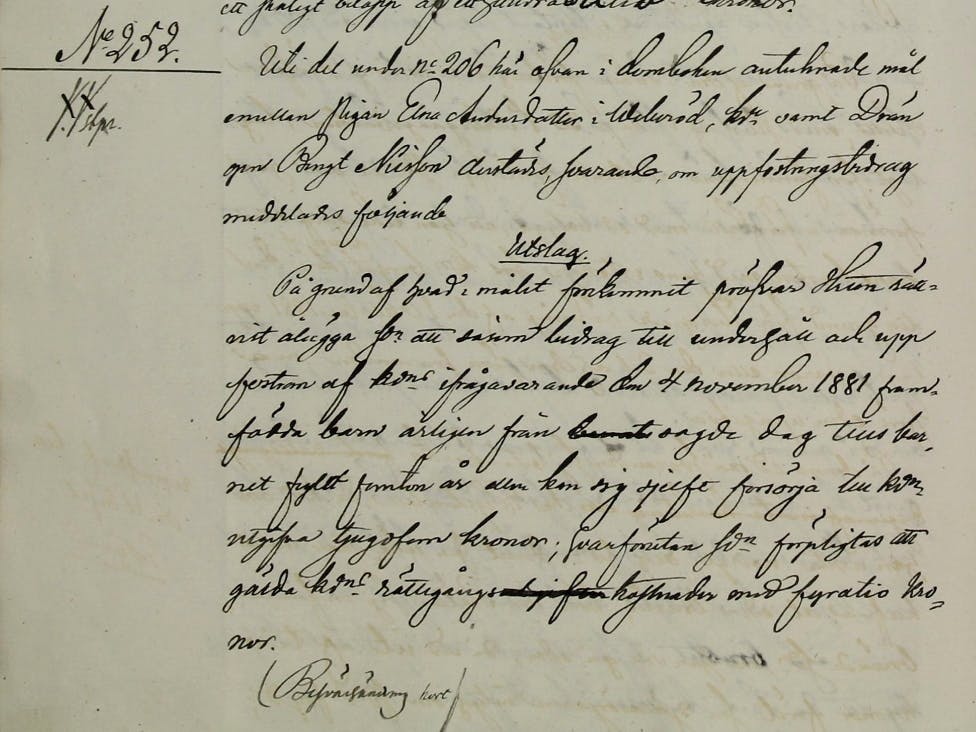 ett
No 252.
Uti det under No 206 här ofvan i domboken antecknade mål
emellan Pigan Elna Andersdatter i Welinröd, kde, samt Drän
gen Bengt Nilsson derstädes, svarande, om uppfostringsbidrag
meddelades följande
Utslag.
På grund af hvad i målet förekommit pröfvar HRten rätt-
vist ålägga Sdn att såsom bidrag till underhåll och upp
fostran af kdns ifrågavarande den 4 november 1881 fram-
födda barn årligen från sagde dag tills bar,
net fyllt femton år eller kan sig sjelft försörja till kdn
utgifva tjugofem kronor; hvarförutan Sdn förpligtas att
gälda kdns rättegångskostnader med fyratio kro-
nor.
(Besvärshänvisning kort)